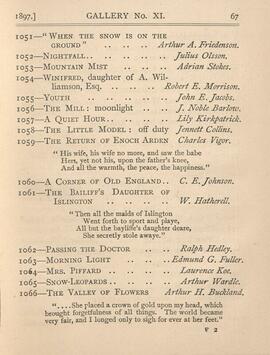 1897.] GALLERY No. XI. 67
1051—"When the snow is on the
ground" .. .. .. Arthur A. Friedenson.
1052—Nightfall .. .. .. Julius Olsson.
1053—Mountain Mist .. .. Adrian Stokes.
1054—Winifred, daughter of A. Wil-
liamson, Esq. .. .. Robert E. Morrison.
1055—Youth .. .. .. John E. Jacobs.
1056—The Mill: moonlight .. J. Noble Barlow.
1057—A Quiet Hour .. .. Lily Kirkpatrick.
1058—The Little Model: off duty Jennett Collins.
1059—The Return of Enoch Arden Charles Vigor.
"His wife, his wife no more, and saw the babe
Hers, yet not his, upon the father's knee,
And all the warmth, the peace, the happiness."
1060—A Corner of Old England .. C. E. Johnson.
1061—The Bailiff's Daughter of
Islington .. .. W. Hatherell.
"Then all the maids of Islington
Went forth to sport and playe,
All but the bayliffe's daughter dear,
She secretly stole awaye."
1062—Passing the Doctor .. Ralph Hedley.
1063—Morning Light .. Edmund G. Fuller.
1064—Mrs. Piffard .. .. Laurence Koe.
1065—Snow-Leopards .. .. Arthur Wardle.
1066—The Valley of Flowers .. Arthur H. Buckland.
"....She placed a crown of gold upon my head, which
brought forgetfulness of all things. The world became
very fair, and I longed only to sigh for ever at her feet."
F 2